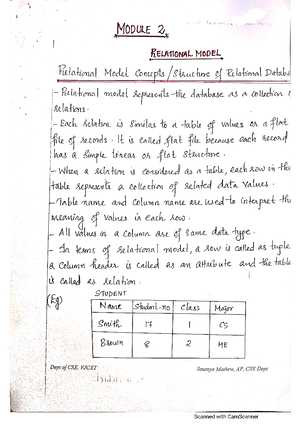 MODULE 2
RELATIONAL MODEL
Relational Model Concepts/Structure of Relational Databa
- Relational model represents the database as a collection
relations.
- Each relation is similar to a table of values or a flat
file of records. It is called flat file because each record
has a simple linear or flat structure.
- When a relation is considered as a table, each row in the
table represents a collection of related data values.
- Table name and column name are used to interpret the
meaning of values in each row.
- All values in a column are of same data type.
- In terms of relational model, a row is called as tuple
a column header is called as an attribute and the table
is called as relation.
(Eg) STUDENT
Name Student-no Class Major
Smith 17 1 CS
Brown 8 2 ME
Dept of CSE, VJCET Soumya Mathew, AP, CSE Dept
Scanned with CamScanner